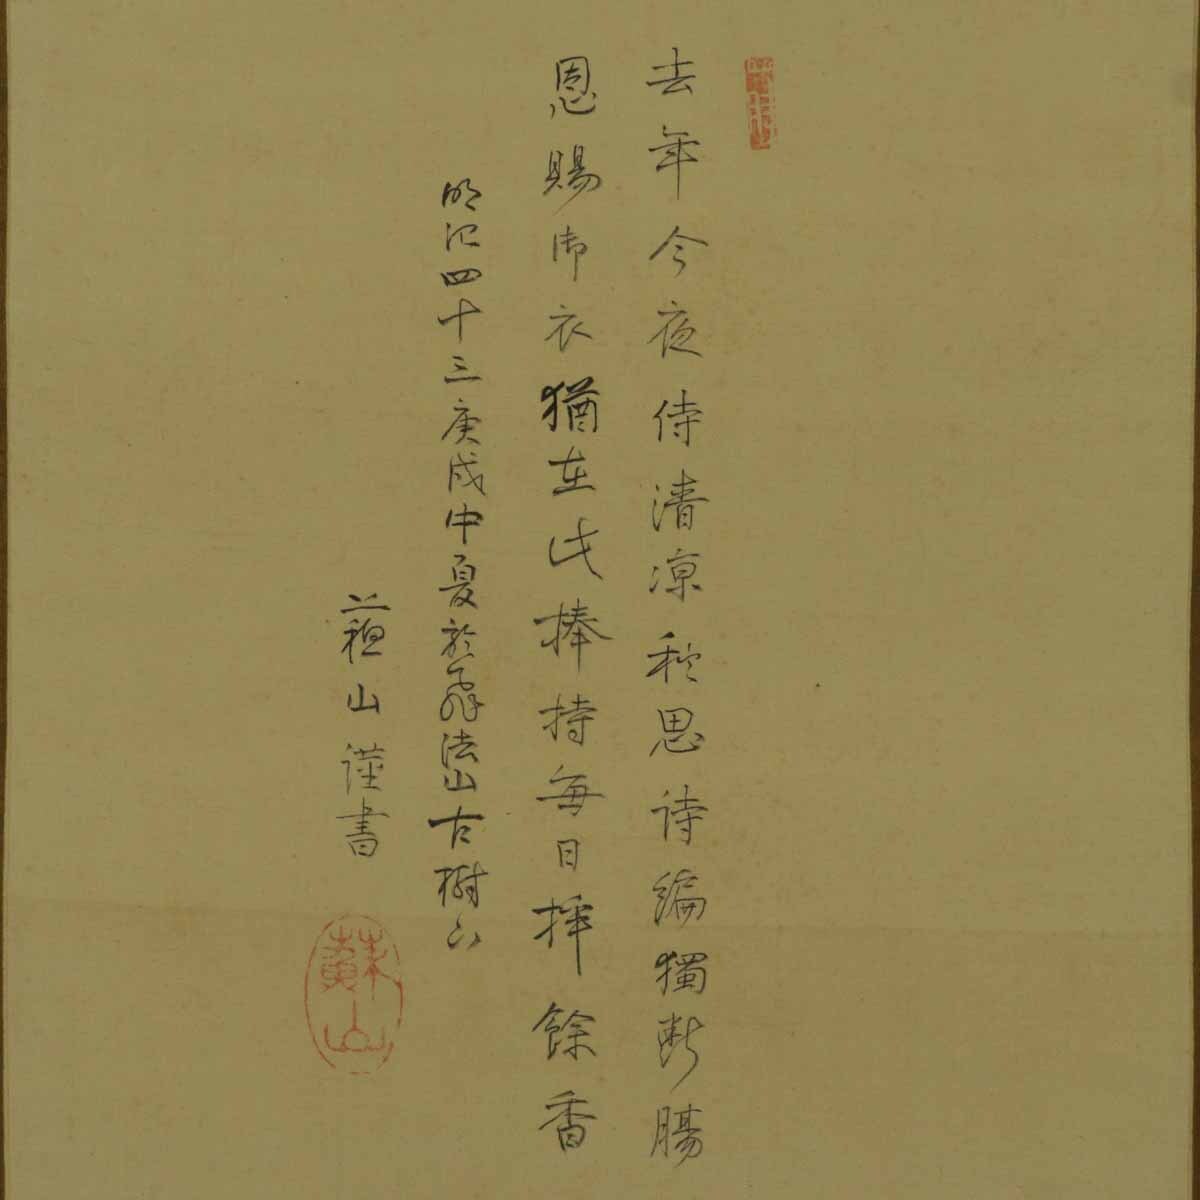 去年今夜侍清凉秋思詩編獨断腸
恩賜御衣猶在此捧持毎日拝餘香
明治四十三庚戌中夏於飛法山古樹下
蘓山謹書
蘇山